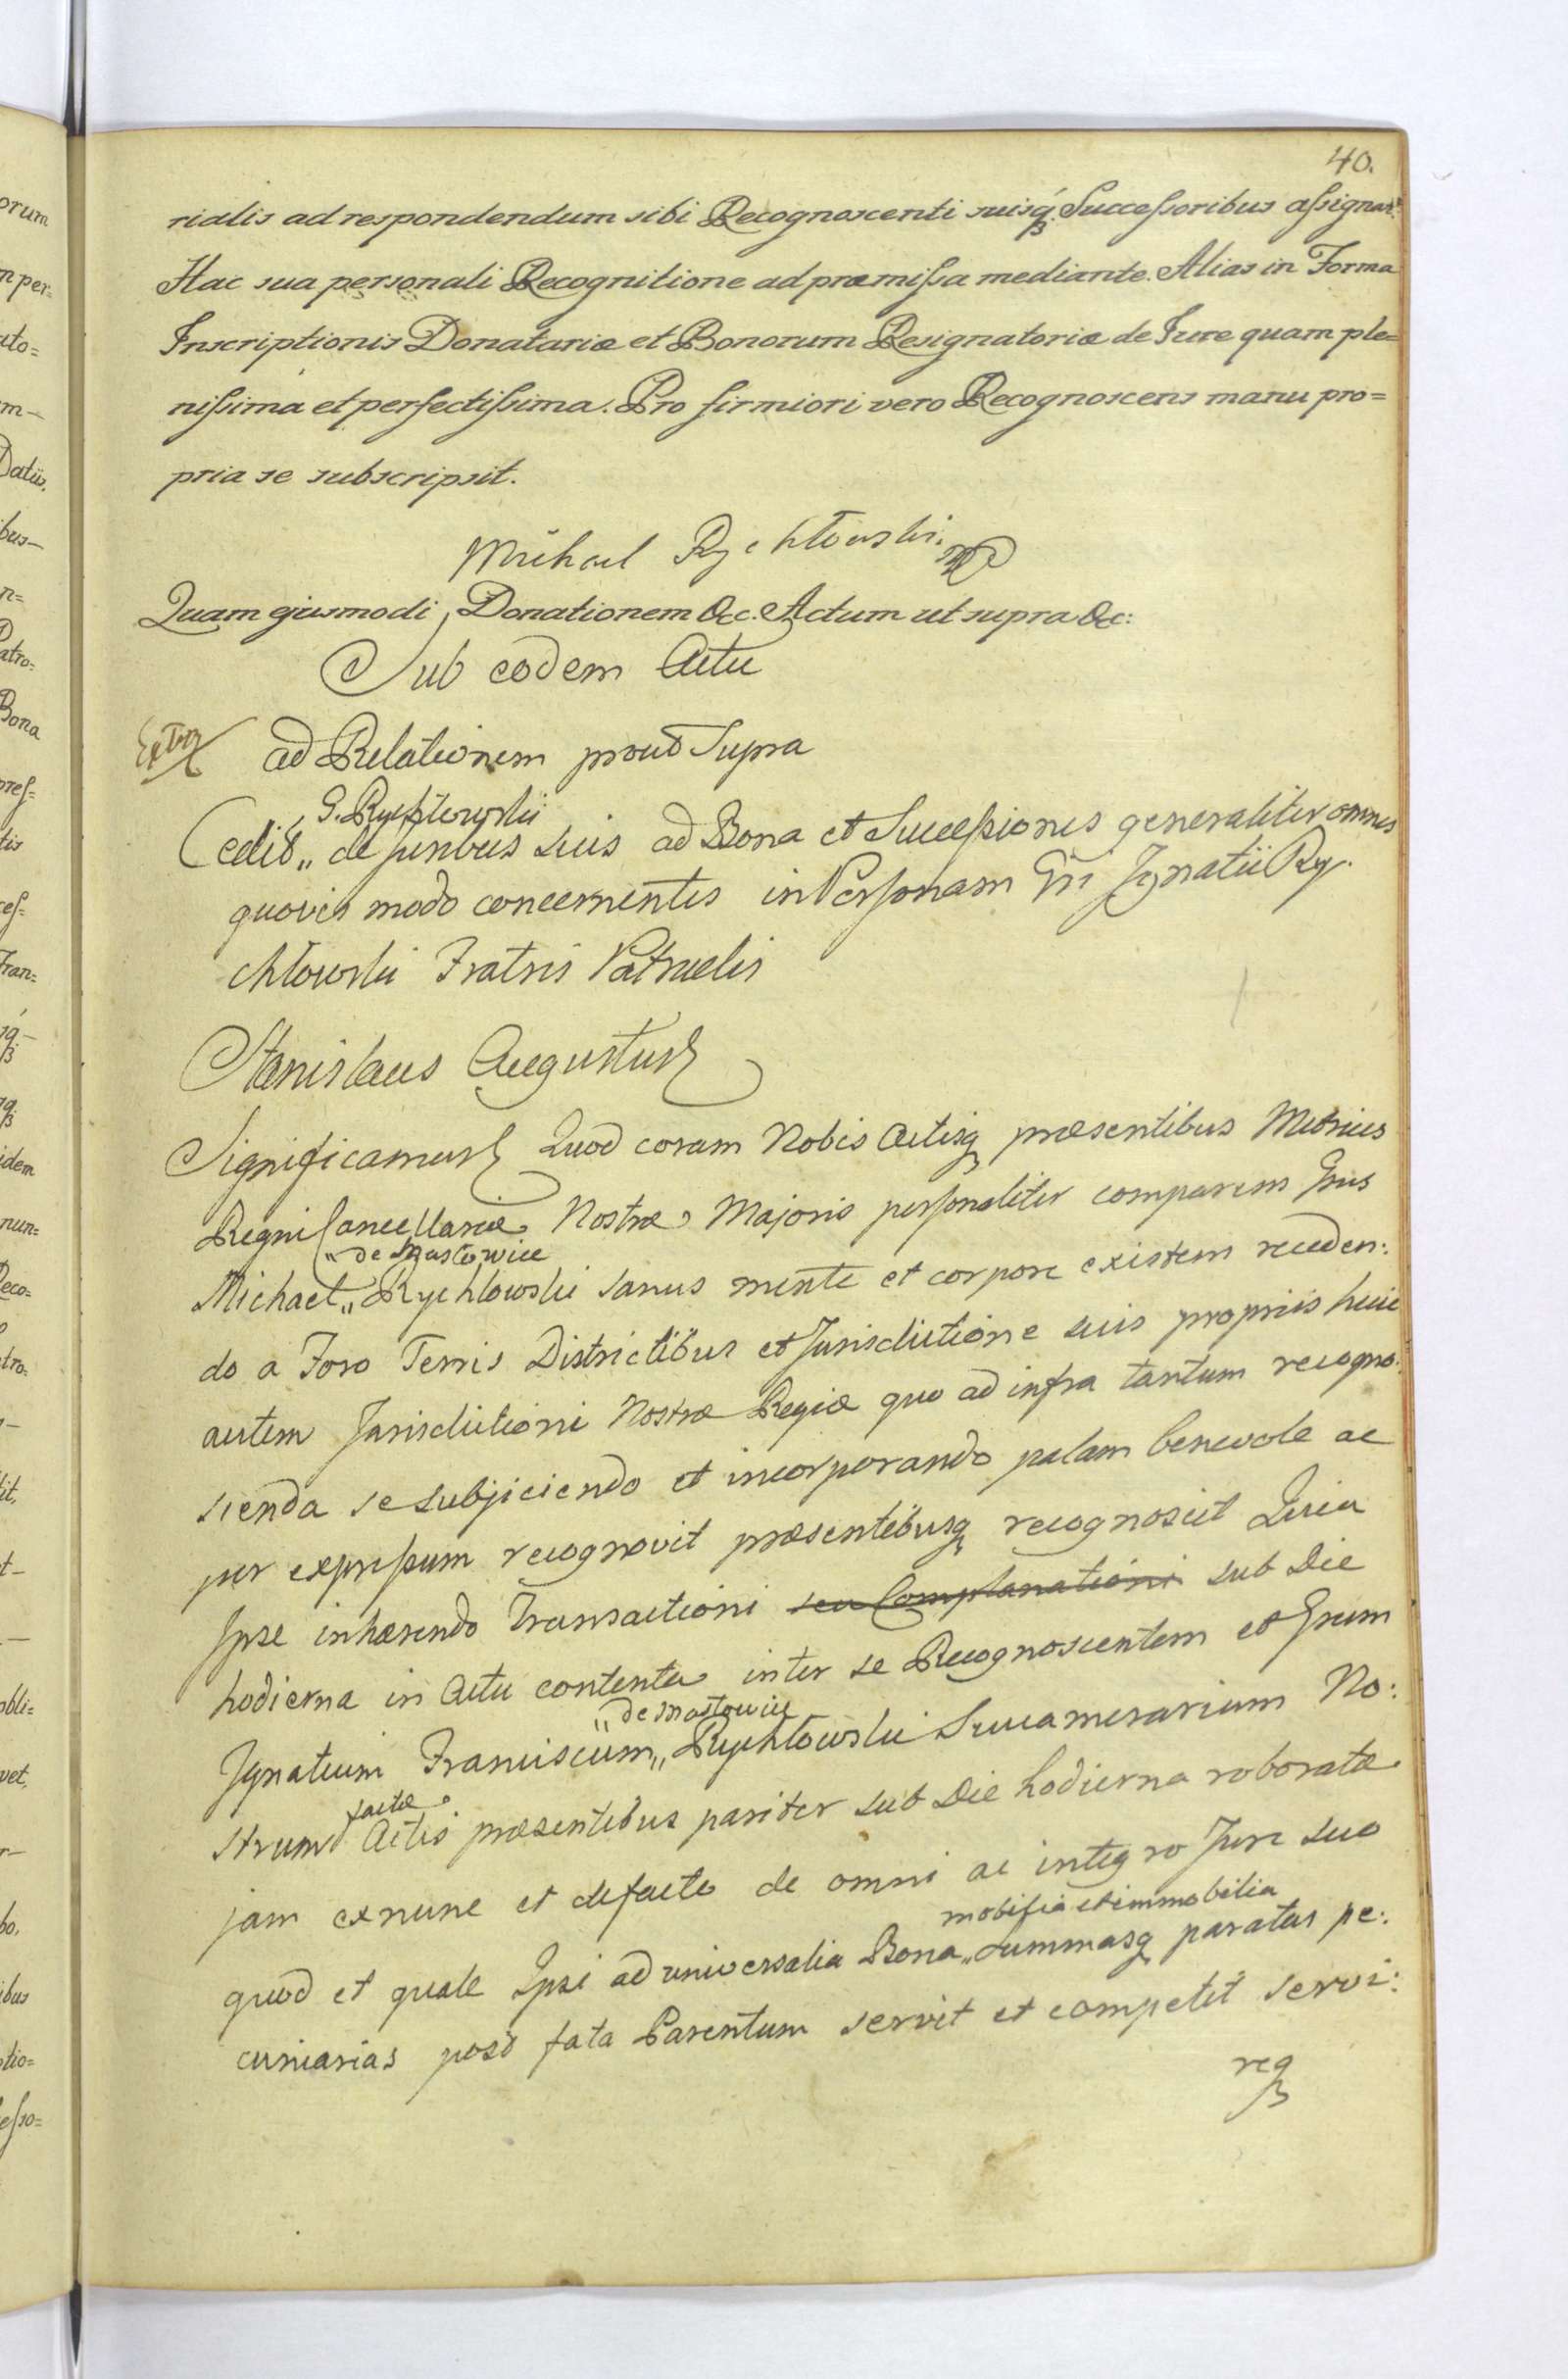 40.
rialis ad respondendum sibi Recognoscenti suisq́ꝫ Successoribus assignat:
Hac sua personali Recognitione ad præmissa mediante. Alias in Forma
Inscriptionis Donatariæ et Bonorum Resignatoriæ de Jure quam ple=
nissima et perfectissima. Pro firmiori vero Recognoscens manu pro=
pria se subscripsit.
Michael Rychłowski mp
Quam ejusmodi Donationem &c. Actum ut supra &c:
Sub eodem Actu
Extr
ad Relationem prout Supra
G. Rychłowski
Cedit „ de juribus suis ad Bona et Successiones generaliter omnes
quovis modo concernentes in Personam Gsi Ignatii Ry:
chłowski Fratris Patruelis
Stanislaus Augustus
Significamus Quod coram Nobis Actisqꝫ præsentibus Metrices
Regni Cancellariæ Nostræ Majoris personaliter comparens Gsus
„ de Mastowice
Michael „ Rychłowski sanus mente et corpore existens receden:
do a Foro Terris Districtibus et Jurisdictione suis propriis huic
autem Jurisdictioni Nostræ Regiæ quo ad infra tantum recogno:
scenda se subjiciendo et incorporando palam benevole ac
per expressum recognovit præsentibusqꝫ recognoscit Quia
Ipse inhærendo Transactioni seu Complanationi sub Die
hodierna in Actu contenta inter se Recognoscentem et Gsum
„ de Mastowice
Ignatium Franciscum „ Rychłowski Succamerarium No:
factæ
strum Actis præsentibus pariter sub Die hodierna roboratæ
jam exnunc et defacto de omni ac integro Jure suo
mobilia et immobilia
quod et quale Ipsi ad universalia Bona „ Summasqꝫ paratas pe:
cuniarias post fata Parentum servit et competit servi:
reqꝫ